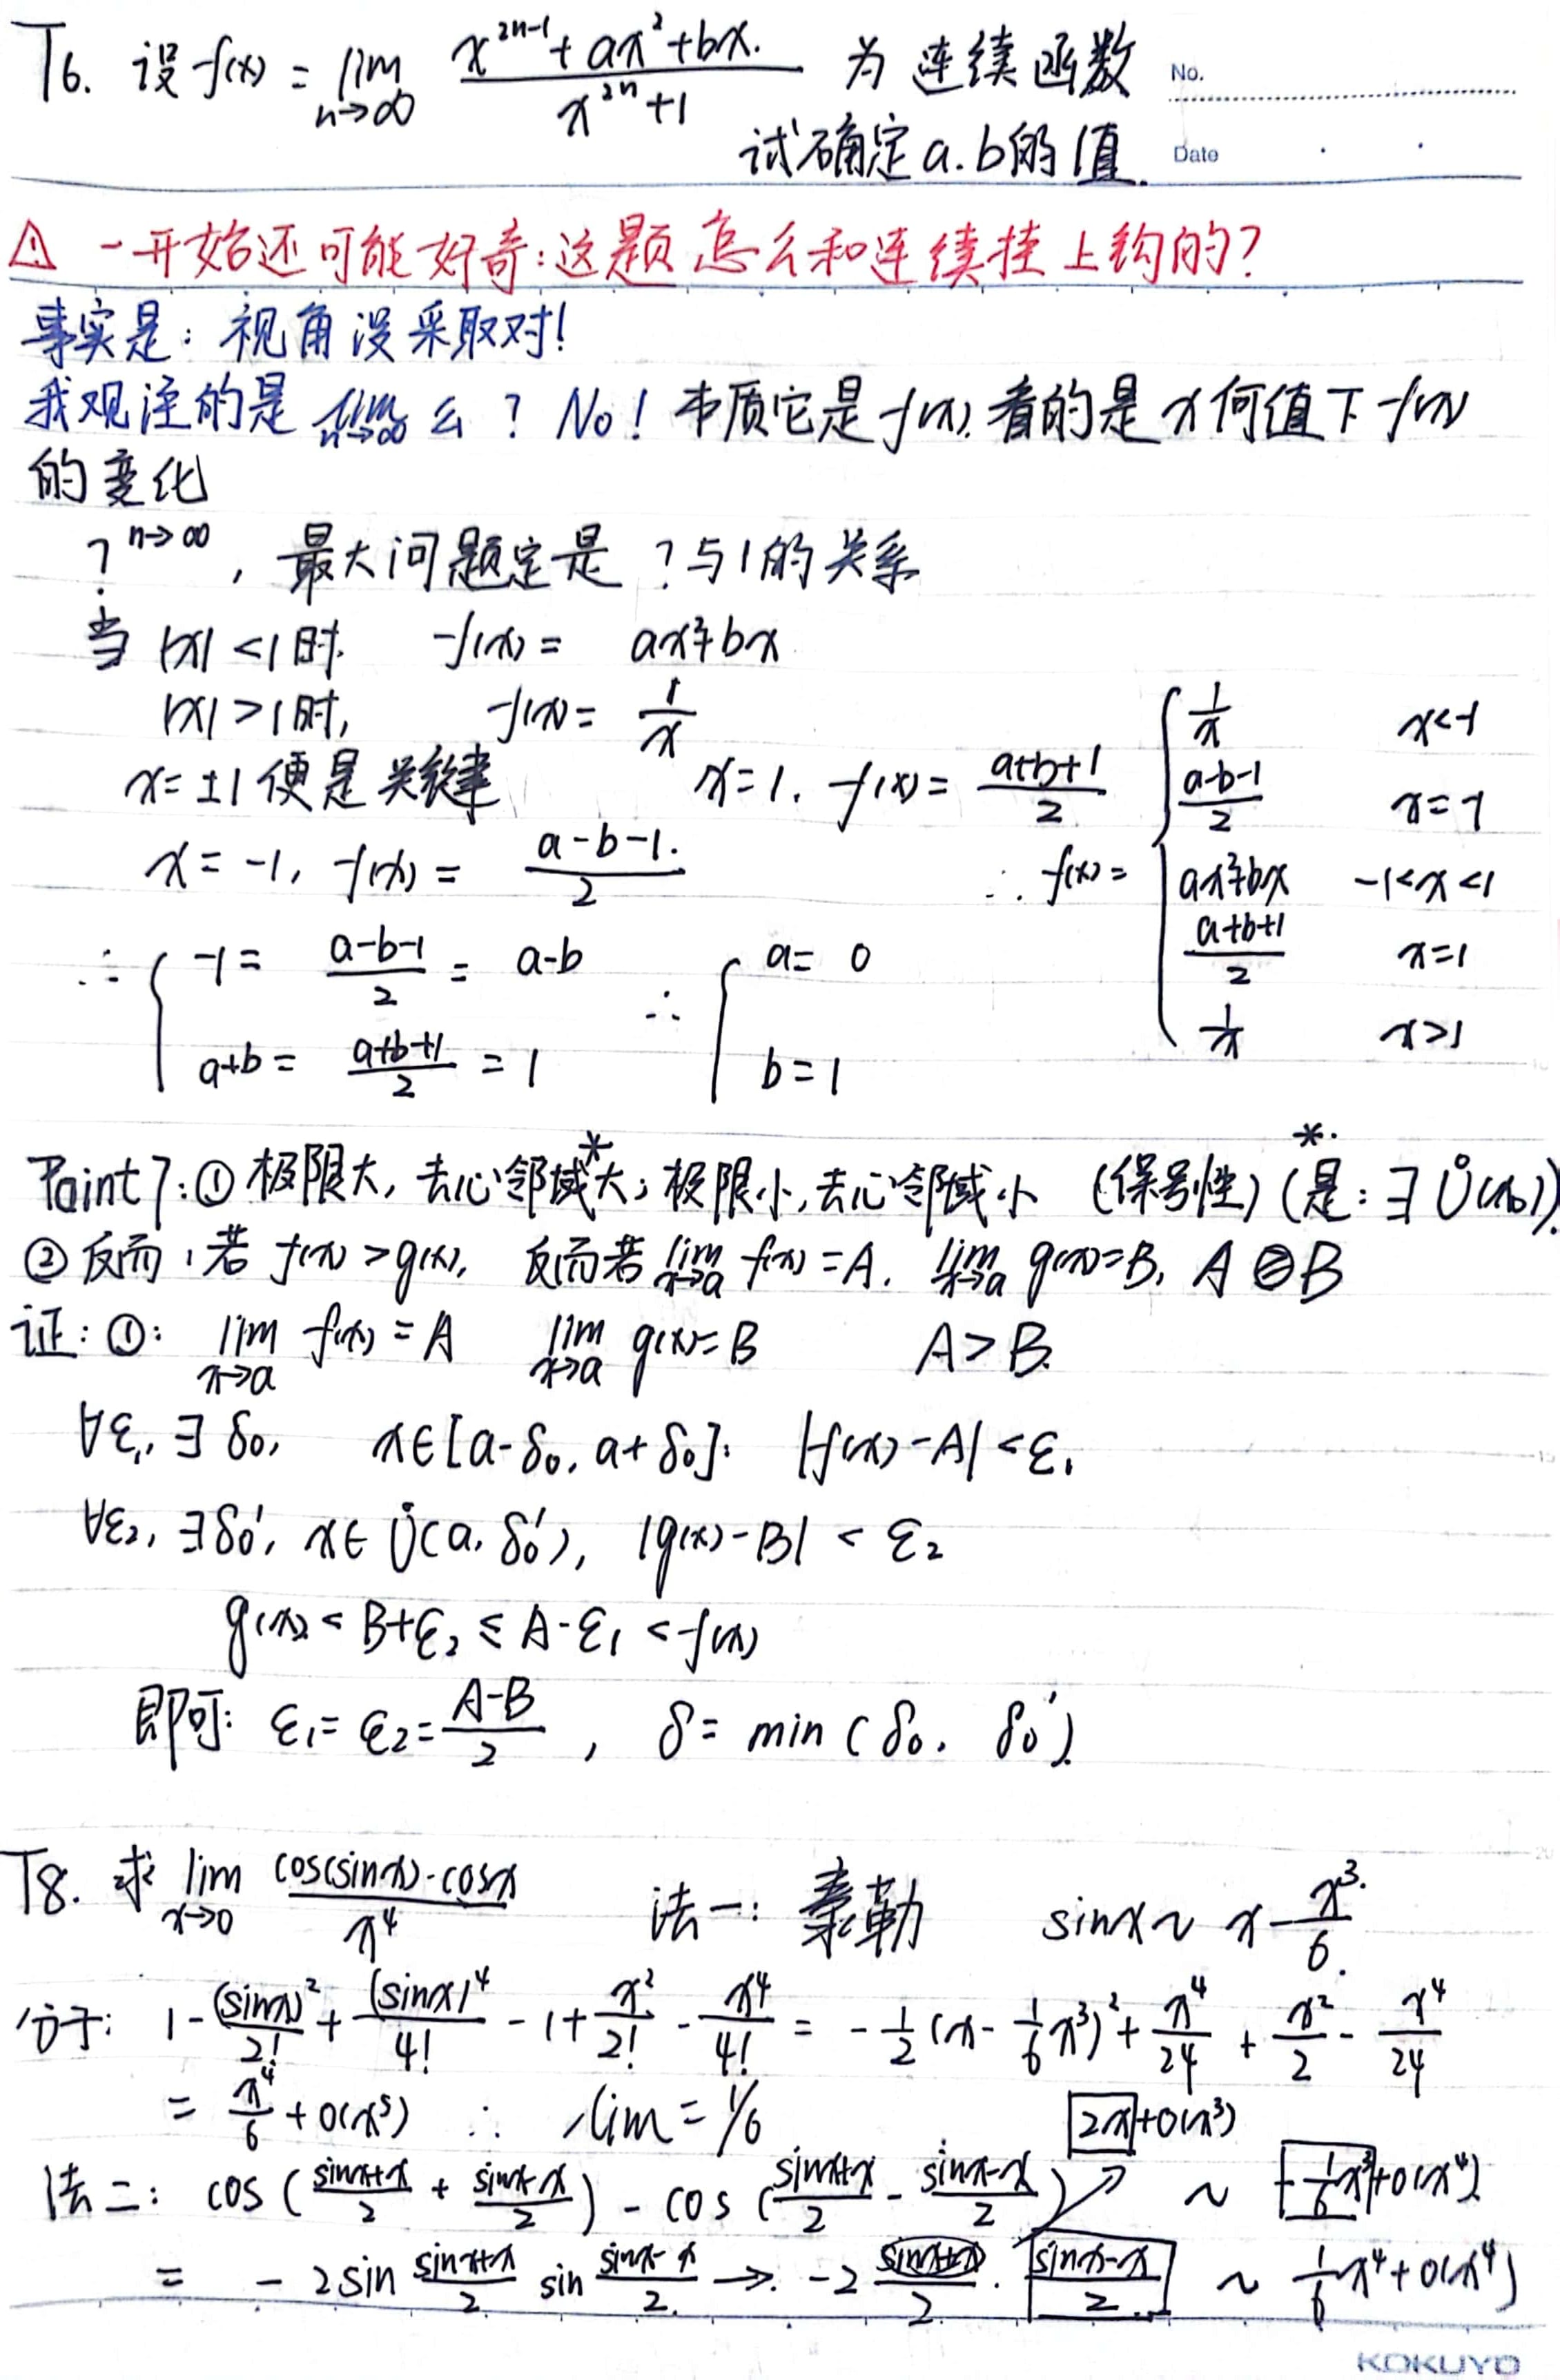 T6. 设 f(x) = lim_{n→∞} (x^{2n-1} + ax² + bx.)/(x^{2n} + 1) 为连续函数
No.
试确定 a.b的值.
Date
⚠ 一开始还可能好奇:这题怎么和连续挂上钩的?
事实是: 视角没采取对!
我观注的是 lim_{n→∞} 么? No! 本质它是 f(x), 看的是 x何值下 f(x)
的变化
?^{n→∞}, 最大问题定是 ?与1的关系
当 |x| <1时. f(x) = ax²+bx
|x| >1时, f(x) = 1/x
x= ±1 便是关键 x=1. f(x) = (a+b+1)/2
x = -1, f(x) = (a-b-1.)/2
∴ f(x) = { 1/x x<-1
(a-b-1)/2 x=-1
ax²+bx -1<x<1
(a+b+1)/2 x=1
1/x x>1
∴ { -1 = (a-b-1)/2 = a-b ∴ { a= 0
a+b = (a+b+1)/2 = 1 b=1
Point7: ① 极限大, 去心邻域*大; 极限小, 去心邻域小 (保号性) (*.是: ∃ Ů(x₀)).
② 反而, 若 f(x) >g(x), 反而若 lim_{x→a} f(x) =A. lim_{x→a} g(x)=B, A ≥ B
证: ①: lim_{x→a} f(x) = A lim_{x→a} g(x)=B A > B.
∀ε₁, ∃ δ₀, x∈[a-δ₀, a+δ₀]: |f(x)-A| <ε₁
∀ε₂, ∃δ₀', x∈ Ů(a, δ₀'), |g(x)-B| < ε₂
g(x) < B+ε₂ ≤ A-ε₁ < f(x)
即可: ε₁= ε₂= (A-B)/2 , δ= min (δ₀, δ₀').
T8. 求 lim_{x→0} (cos(sinx)-cosx)/x⁴ 法一: 泰勒 sinx ~ x - x³/6.
分子: 1 - (sinx)²/2! + (sinx)⁴/4! - 1 + x²/2! - x⁴/4! = -1/2 (x - 1/6 x³)² + x⁴/24 + x²/2 - x⁴/24
= x⁴/6 + o(x⁵) ∴ lim = 1/6 2x+o(x³)
法二: cos ( (sinx+x)/2 + (sinx-x)/2 ) - cos ( (sinx+x)/2 - (sinx-x)/2 ) ~ -1/6 x³+o(x⁴)
= - 2sin (sinx+x)/2 sin (sinx-x)/2 → -2 (sinx+x)/2 · (sinx-x)/2 ~ 1/6 x⁴+o(x⁴)
KOKUYO